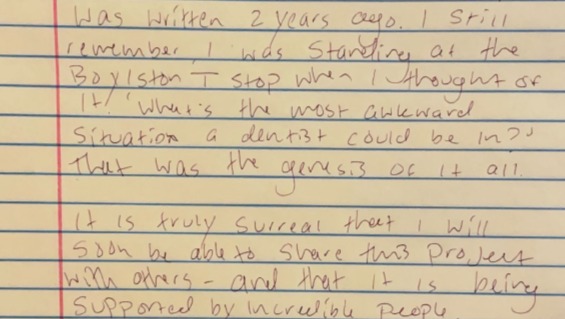 was written 2 years ago. I still
remember, I was standing at the
Boylston T stop when I thought of
it! "What's the most awkward
situation a dentist could be in?"
That was the genesis of it all.
It is truly surreal that I will
soon be able to share this project
with others - and that it is being
supported by incredible people